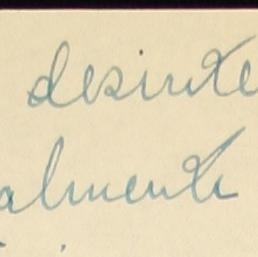 desinte
almente